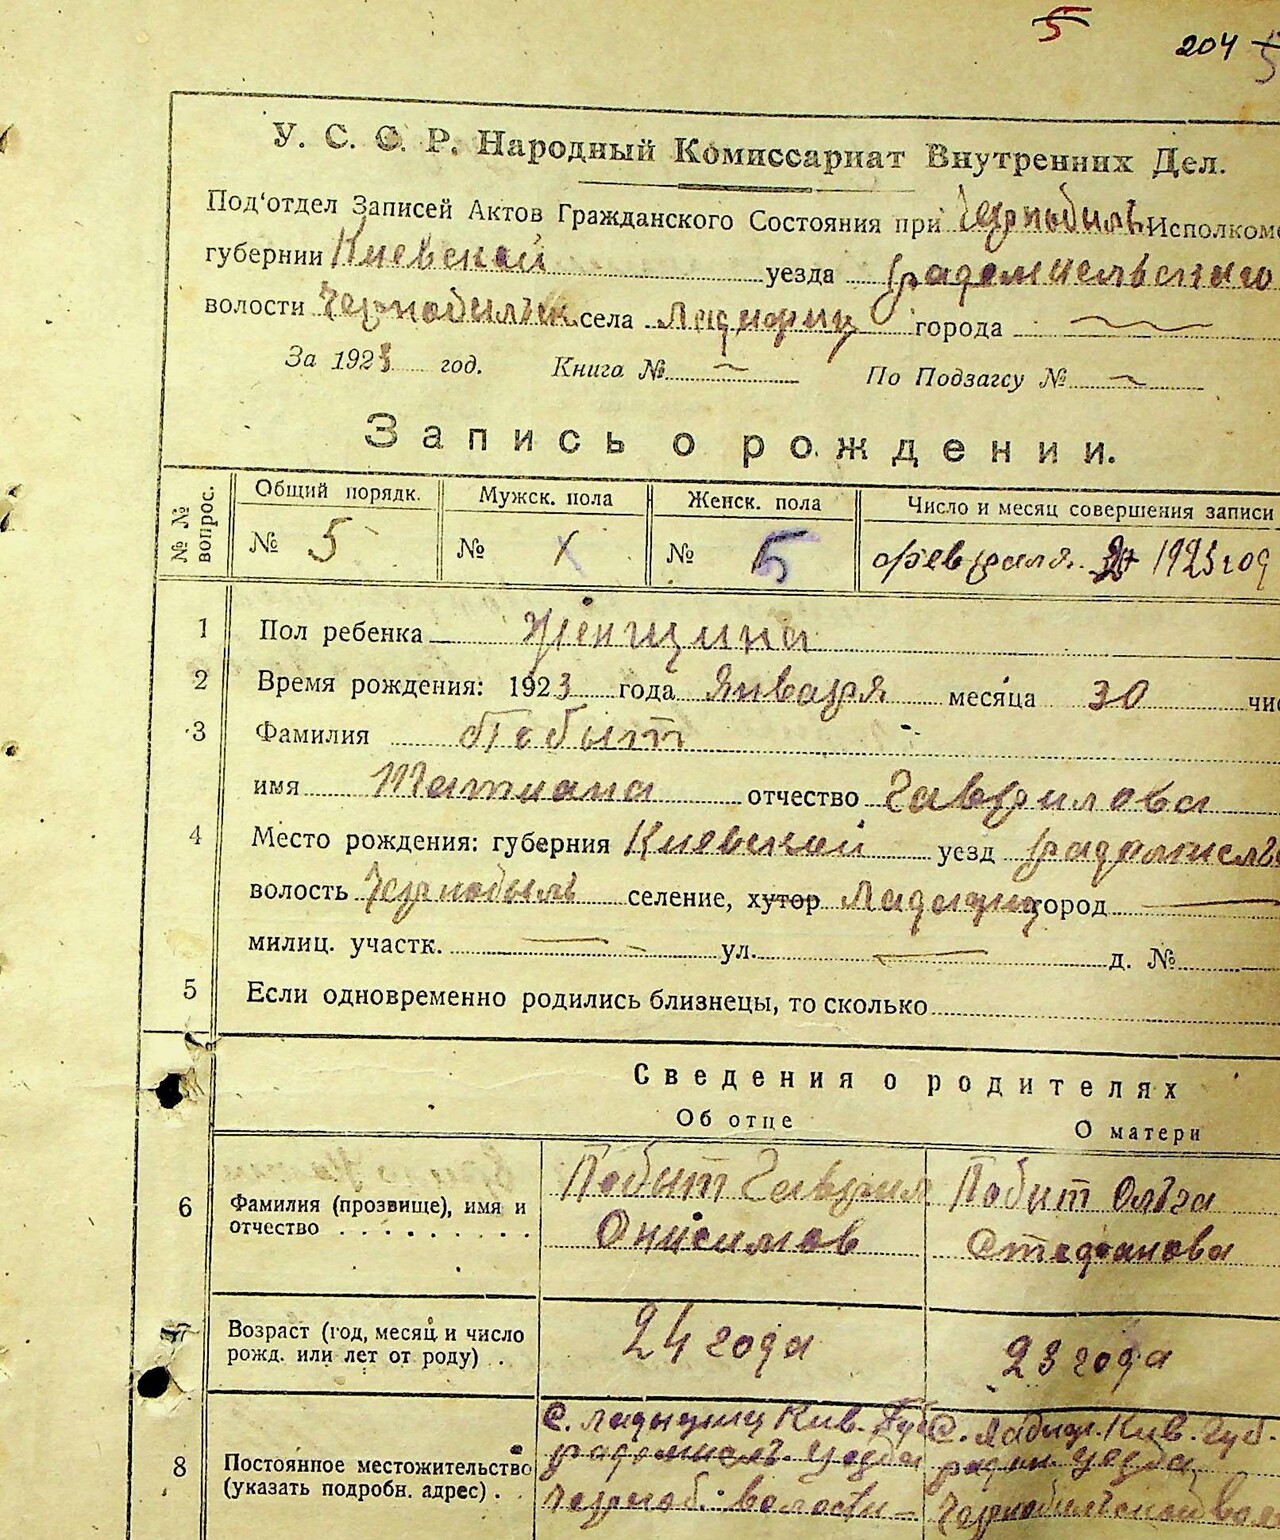 5
204 5
У. С. С. Р. Народный Комиссариат Внутренних Дел.
Под'отдел Записей Актов Гражданского Состояния при Чернобыль Исполкоме
губернии Киевской уезда Радомисельского
волости села города
За 1923 год. Книга № По Подзагсу №
Запись о рождении.
№ № вопрос. Общий порядк. Мужск. пола Женск. пола Число и месяц совершения записи
№ 5 № х № 5 февраля 1923 год
1 Пол ребенка Женщина
2 Время рождения: 1923 года Января месяца 30 чис
3 Фамилия Побыт
имя Татиана отчество Гаврилова
4 Место рождения: губерния Киевской уезд
волость Чернобыль селение, хутор город
милиц. участк. ул. д. №
5 Если одновременно родились близнецы, то сколько
Сведения о родителях
Об отце О матери
6 Фамилия (прозвище), имя и отчество Побыт Гаврил Онисимов Побит Ольга Стефанова
7 Возраст (год, месяц и число рожд. или лет от роду) 24 года 23 года
8 Постоянное местожительство (указать подробн. адрес) С. Кив. Губ уезда Черноб. волости С. Кив. Губ. уезда